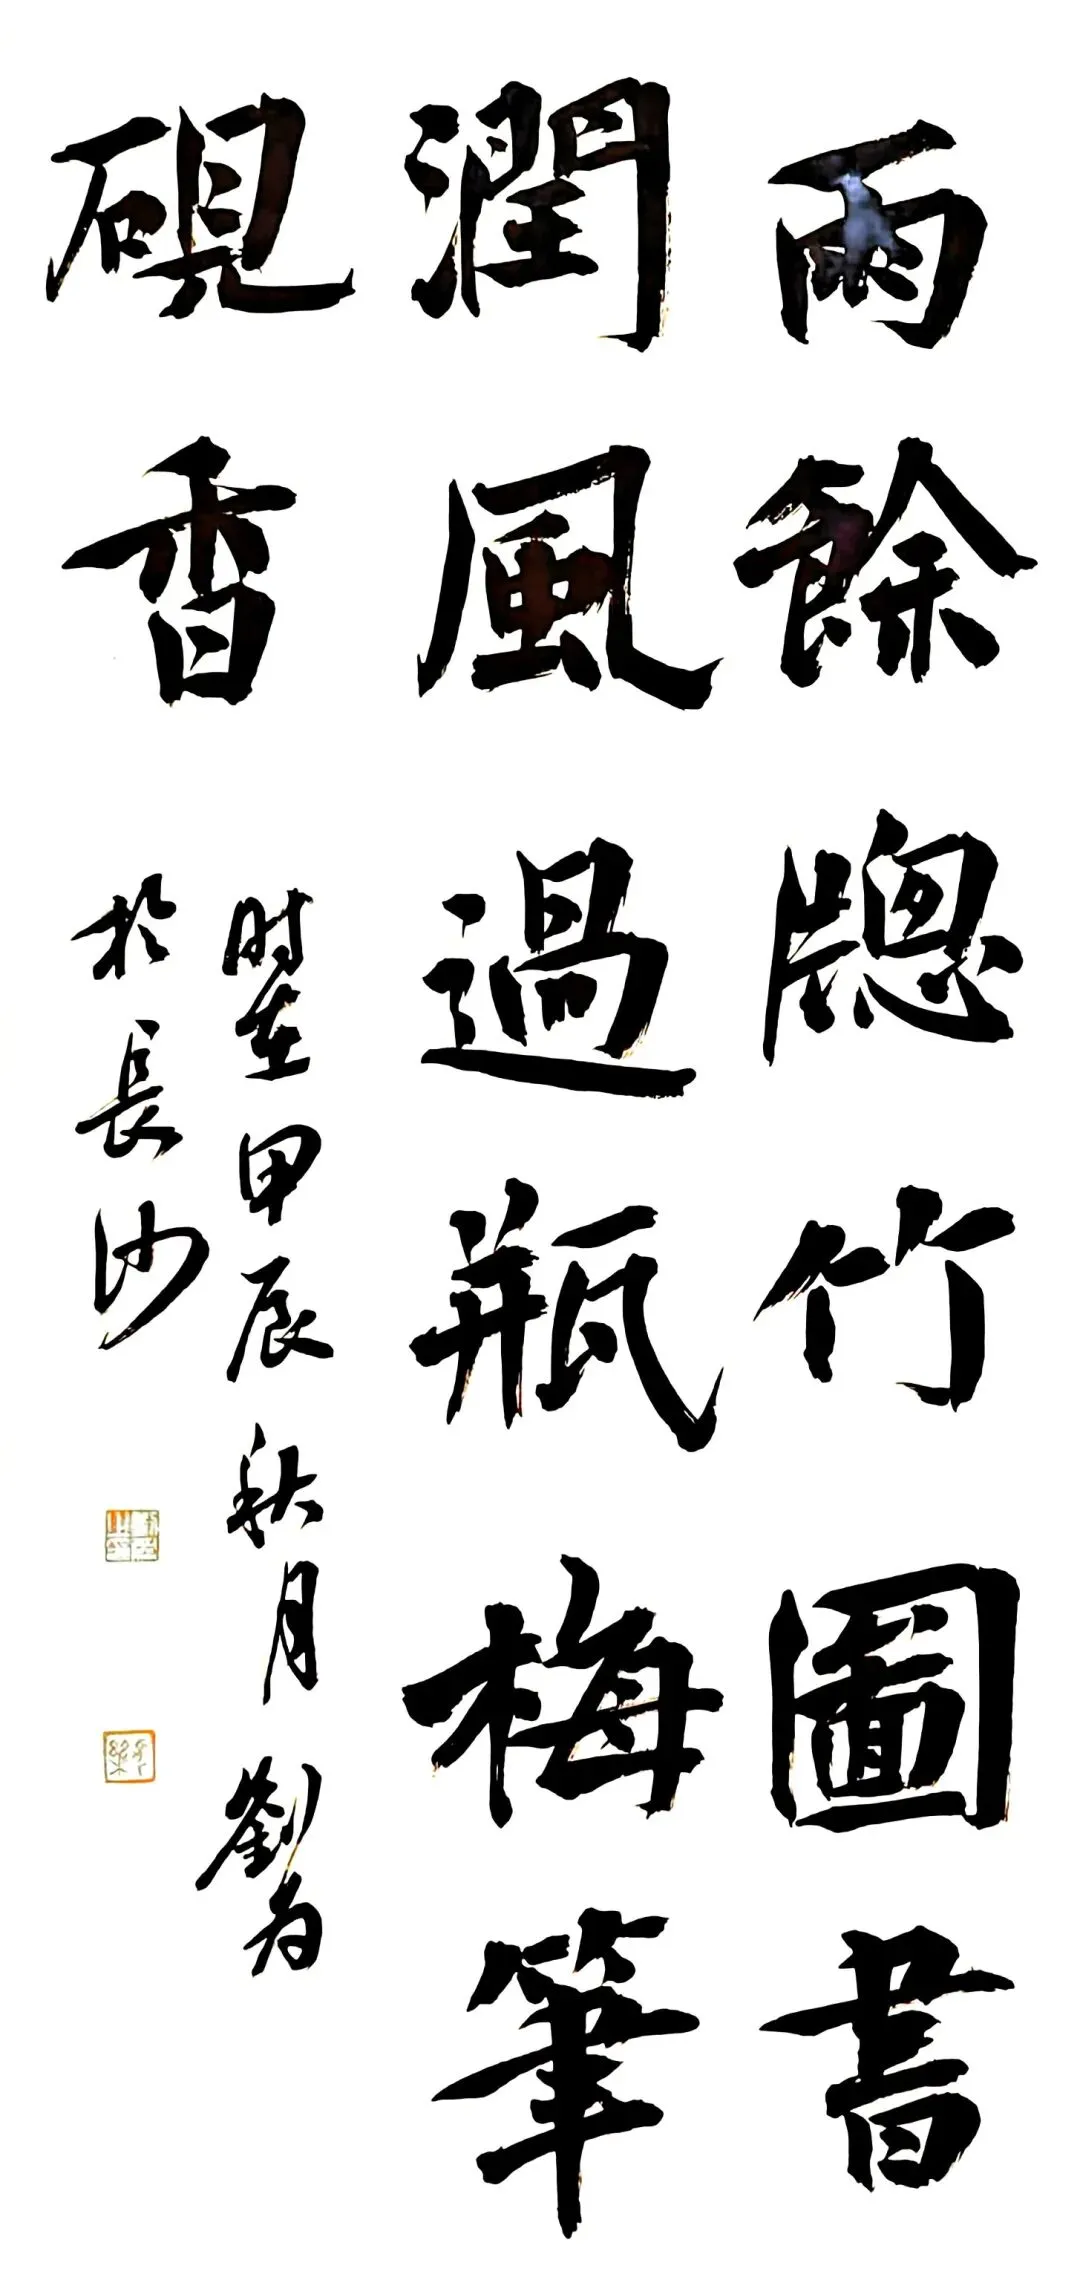 雨餘牕竹圖書
潤風過瓶梅筆
硯香
時在甲辰秋月劉为
於長沙